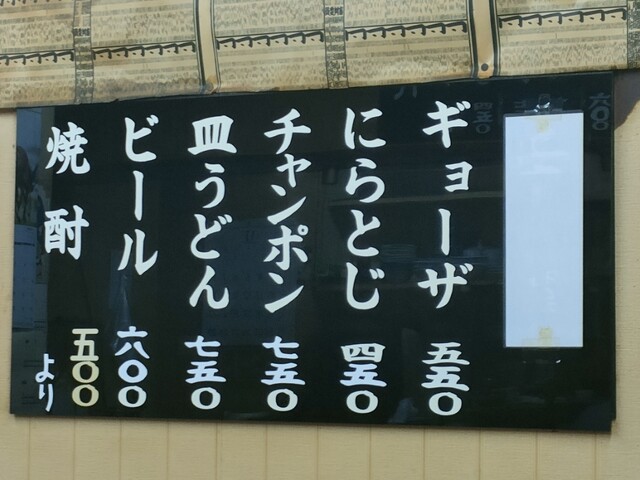 ギョーザ 五五〇
にらとじ 四五〇
チャンポン 七五〇
皿うどん 七五〇
ビール 六〇〇
焼酎 五〇〇より